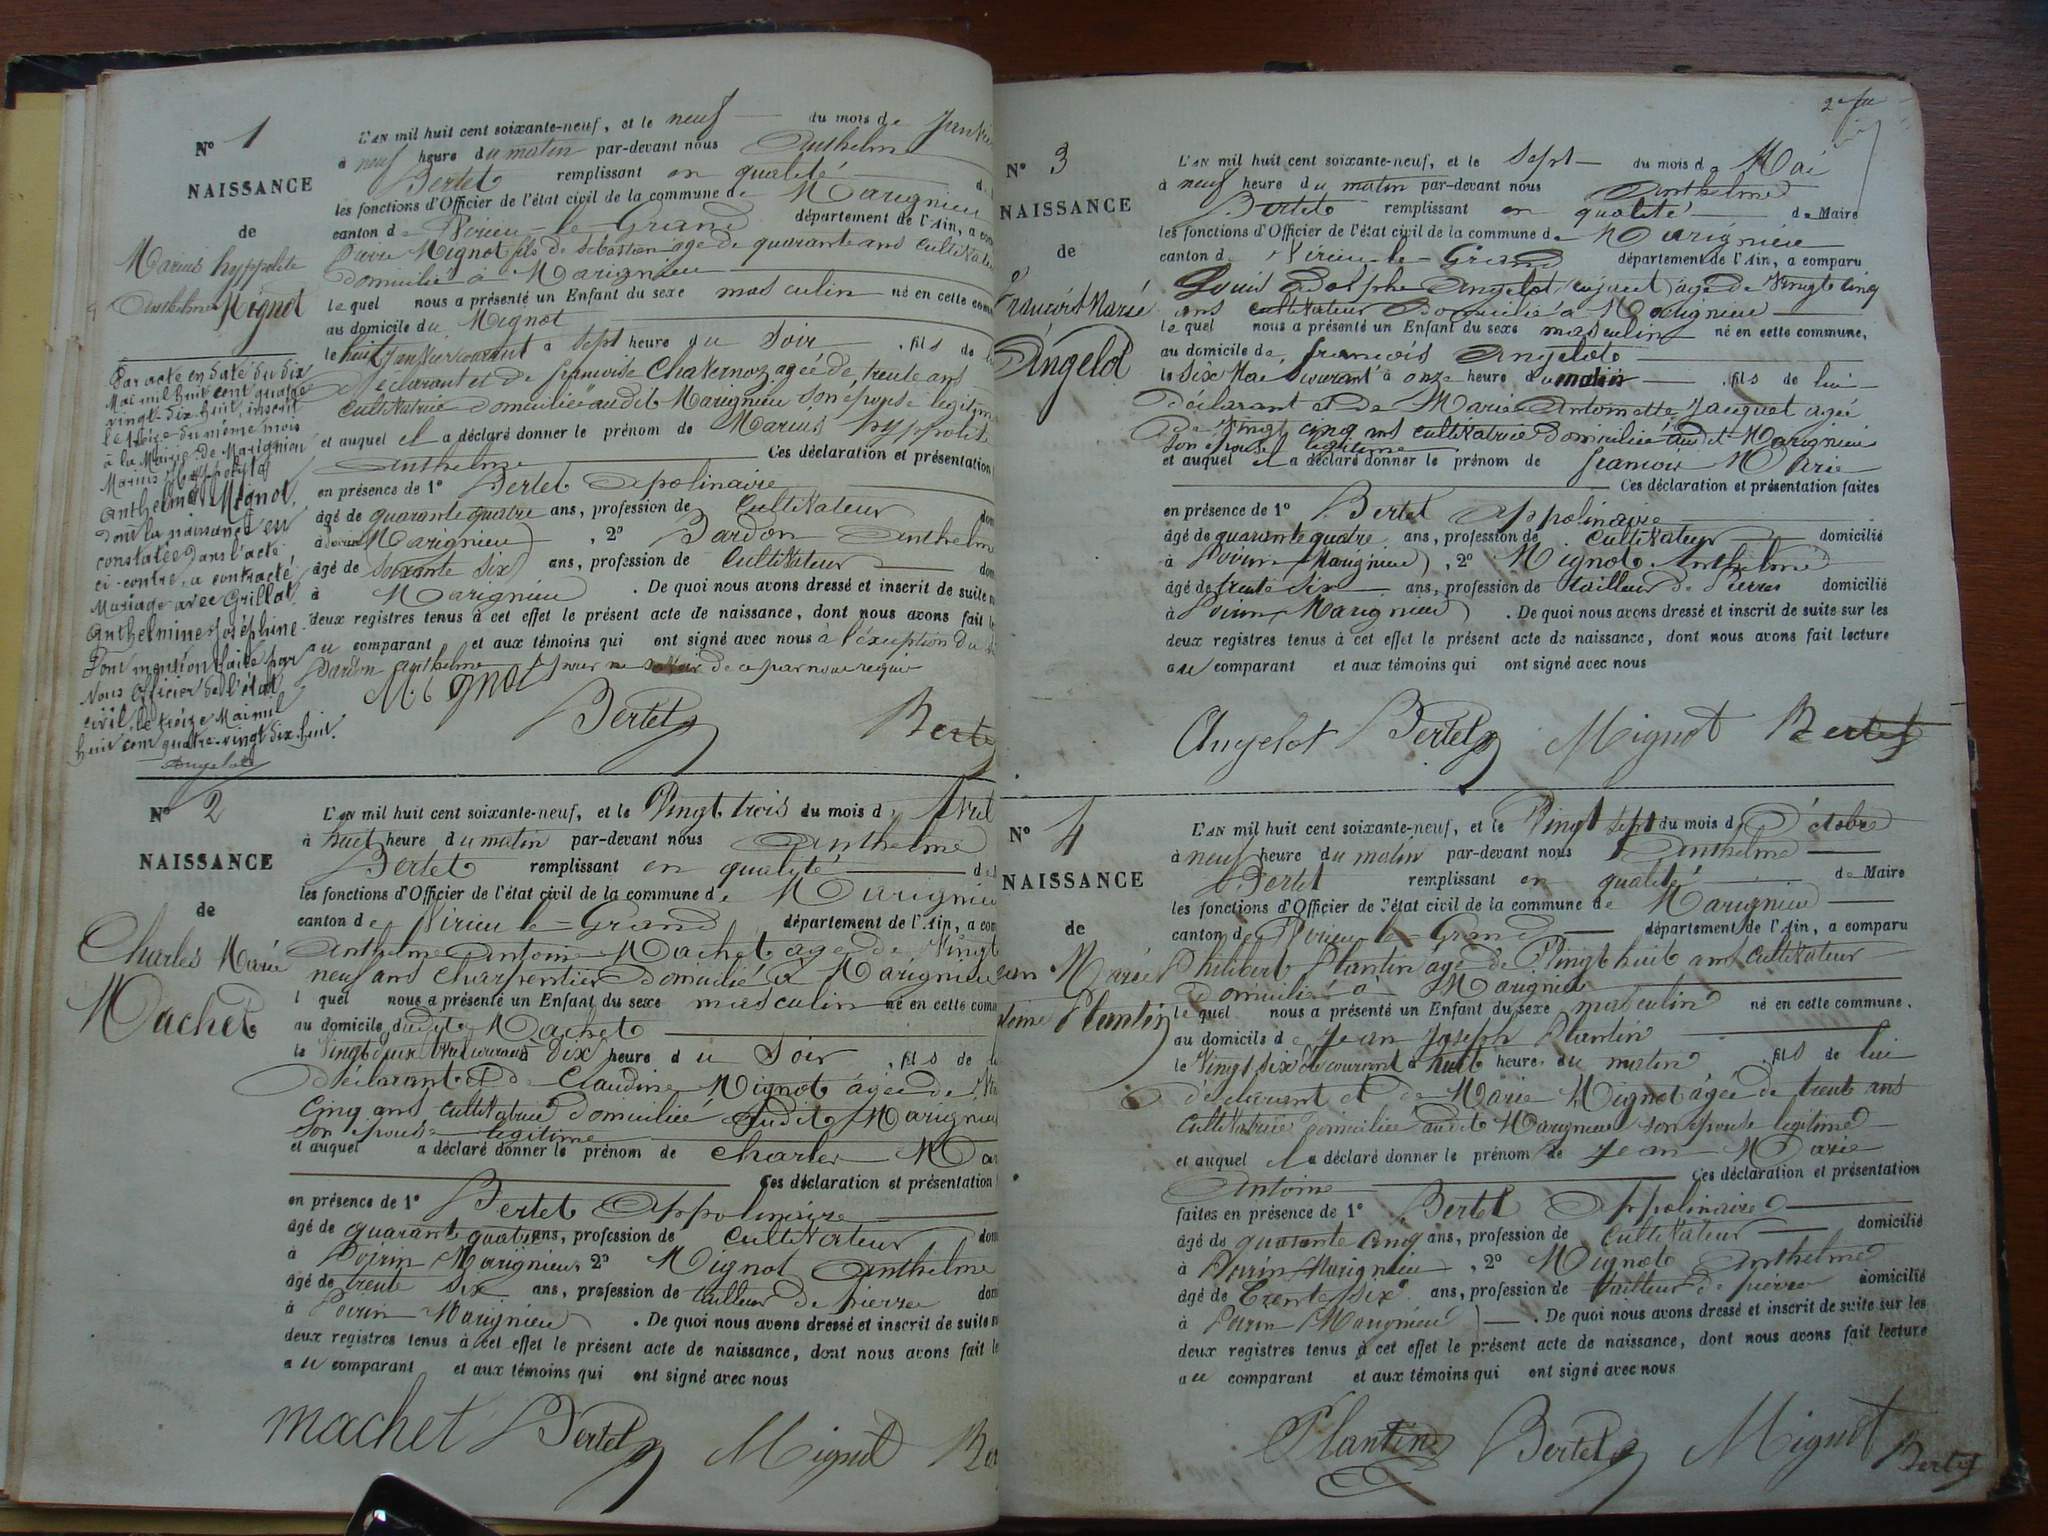 N° 1
NAISSANCE
de
Marius hyppolite
Anthelme Mignot
Par acte en date du dix
Mai mil huit cent quatre
vingt-dix huit, inscrit
le treize du même mois
à la Mairie de Marignieu
Marius Hyppolite
Anthelme Mignot,
dont la naissance est
constatée dans l'acte
ci-contre, a contracté
Mariage avec Grillat
Anthelmine Joséphine.
Dont mention faite par
Nous Officier de l'état
civil, le treize Mai mil
huit cent quatre-vingt dix-huit.
Angelot
L'AN mil huit cent soixante-neuf, et le neuf du mois de Janvie
à neuf heure du matin par-devant nous Anthelme
Bertet remplissant en qualité d
les fonctions d'Officier de l'état civil de la commune de Marignieu
canton de Virieu-le-Grand département de l'Ain, a com
Pierre Mignot fils de Sébastien agé de quarante ans cultivate
domicilié à Marignieu
lequel nous a présenté un Enfant du sexe masculin né en cette comm
au domicile du Mignot
le huit Janvier courant à sept heure du soir , fils de
Déclarant et de françoise Chavernoz agée de trente ans
cultivatrice domiciliée audit Marignieu son épouse légitime
et auquel il a déclaré donner le prénom de Marius hyppolite
Anthelme Ces déclaration et présentation
en présence de 1° Bertet Apolinaire
âgé de quarante quatre ans, profession de Cultivateur dom
à Marignieu , 2° Bardon Anthelme
âgé de soixante six ans, profession de Cultivateur dom
à Marignieu . De quoi nous avons dressé et inscrit de suite
deux registres tenus à cet effet le présent acte de naissance, dont nous avons fait le
au comparant et aux témoins qui ont signé avec nous à l'exception du
Bardon Anthelme pour ne savoir de ce par nous requis
Mignot Bertet Berte
N° 2
NAISSANCE
de
Charles Marie
Machet
L'AN mil huit cent soixante-neuf, et le Vingt trois du mois d'Avril
à huit heure du matin par-devant nous Anthelme
Bertet remplissant en qualité de
les fonctions d'Officier de l'état civil de la commune de Marignieu
canton de Virieu le-Grand département de l'Ain, a com
Anthelme Antoine Machet agé de Vingt
neuf ans Charpentier domicilié à Marignieu
l quel nous a présenté un Enfant du sexe masculin né en cette comm
au domicile dudit Machet
le Vingt deux Avril courant à dix heure du Soir , fils de
Déclarant et de Claudine Mignot âgée de
Cinq ans cultivatrice domiciliée Audit Marignieu
Son épouse légitime
et auquel a déclaré donner le prénom de Charles Mar
Ces déclaration et présentation
en présence de 1° Bertet Appolinaire
âgé de quarante quatre ans, profession de Cultivateur dom
à Poirin Marignieu 2° Mignot Anthelme
âgé de trente six ans, profession de tailleur de pierre dom
à Poirin Marignieu . De quoi nous avons dressé et inscrit de suite
deux registres tenus à cet effet le présent acte de naissance, dont nous avons fait le
au comparant et aux témoins qui ont signé avec nous
machet Bertet Mignot Ber
N° 3
NAISSANCE
de
françois Marie
Angelot
L'AN mil huit cent soixante-neuf, et le Sept du mois de Mai
à neuf heure du matin par-devant nous Anthelme
Bertet remplissant en qualité de Maire
les fonctions d'Officier de l'état civil de la commune de Marignieu
canton de Virieu-le-Grand département de l'Ain, a comparu
Louis Adolphe Angelot agé de Vingt cinq
ans cultivateur domicilié à Marignieu
lequel nous a présenté un Enfant du sexe masculin né en cette commune,
au domicile de françois Angelot
le Six Mai courant à onze heure du matin , fils de lui
Déclarant et de Marie Antoinette Jacquet agée
de Vingt cinq ans cultivatrice domiciliée audit Marignieu
son épouse légitime
et auquel il a déclaré donner le prénom de françois Marie
Ces déclaration et présentation faites
en présence de 1° Bertet Appolinaire
âgé de quarante quatre ans, profession de Cultivateur domicilié
à Poirin Marignieu , 2° Mignot Anthelme
âgé de trente six ans, profession de tailleur de Pierres domicilié
à Poirin Marignieu . De quoi nous avons dressé et inscrit de suite sur les
deux registres tenus à cet effet le présent acte de naissance, dont nous avons fait lecture
au comparant et aux témoins qui ont signé avec nous
Angelot Bertet Mignot Bertet
N° 4
NAISSANCE
de
Marie
Plantin
L'AN mil huit cent soixante-neuf, et le Vingt sept du mois d'Octobre
à neuf heure du matin par-devant nous Anthelme
Bertet remplissant en qualité de Maire
les fonctions d'Officier de l'état civil de la commune de Marignieu
canton de Virieu-le-Grand département de l'Ain, a comparu
Philibert Plantin agé de Vingt huit ans cultivateur
domicilié à Marignieu
lequel nous a présenté un Enfant du sexe masculin né en cette commune.
au domicile de Jean Joseph Plantin
le Vingt six courant à huit heure du matin , fils de lui
déclarant et de Marie Mignot âgée de trente ans
cultivatrice domiciliée audit Marignieu son épouse légitime
et auquel il a déclaré donner le prénom de Jean Marie
Antoine Ces déclaration et présentation
faites en présence de 1° Bertet Appolinaire
âgé de quarante cinq ans, profession de Cultivateur domicilié
à Poirin Marignieu , 2° Mignot Anthelme
âgé de trente six ans, profession de tailleur de pierre domicilié
à Poirin Marignieu . De quoi nous avons dressé et inscrit de suite sur les
deux registres tenus à cet effet le présent acte de naissance, dont nous avons fait lecture
au comparant et aux témoins qui ont signé avec nous
Plantin Bertet Mignot Bertet